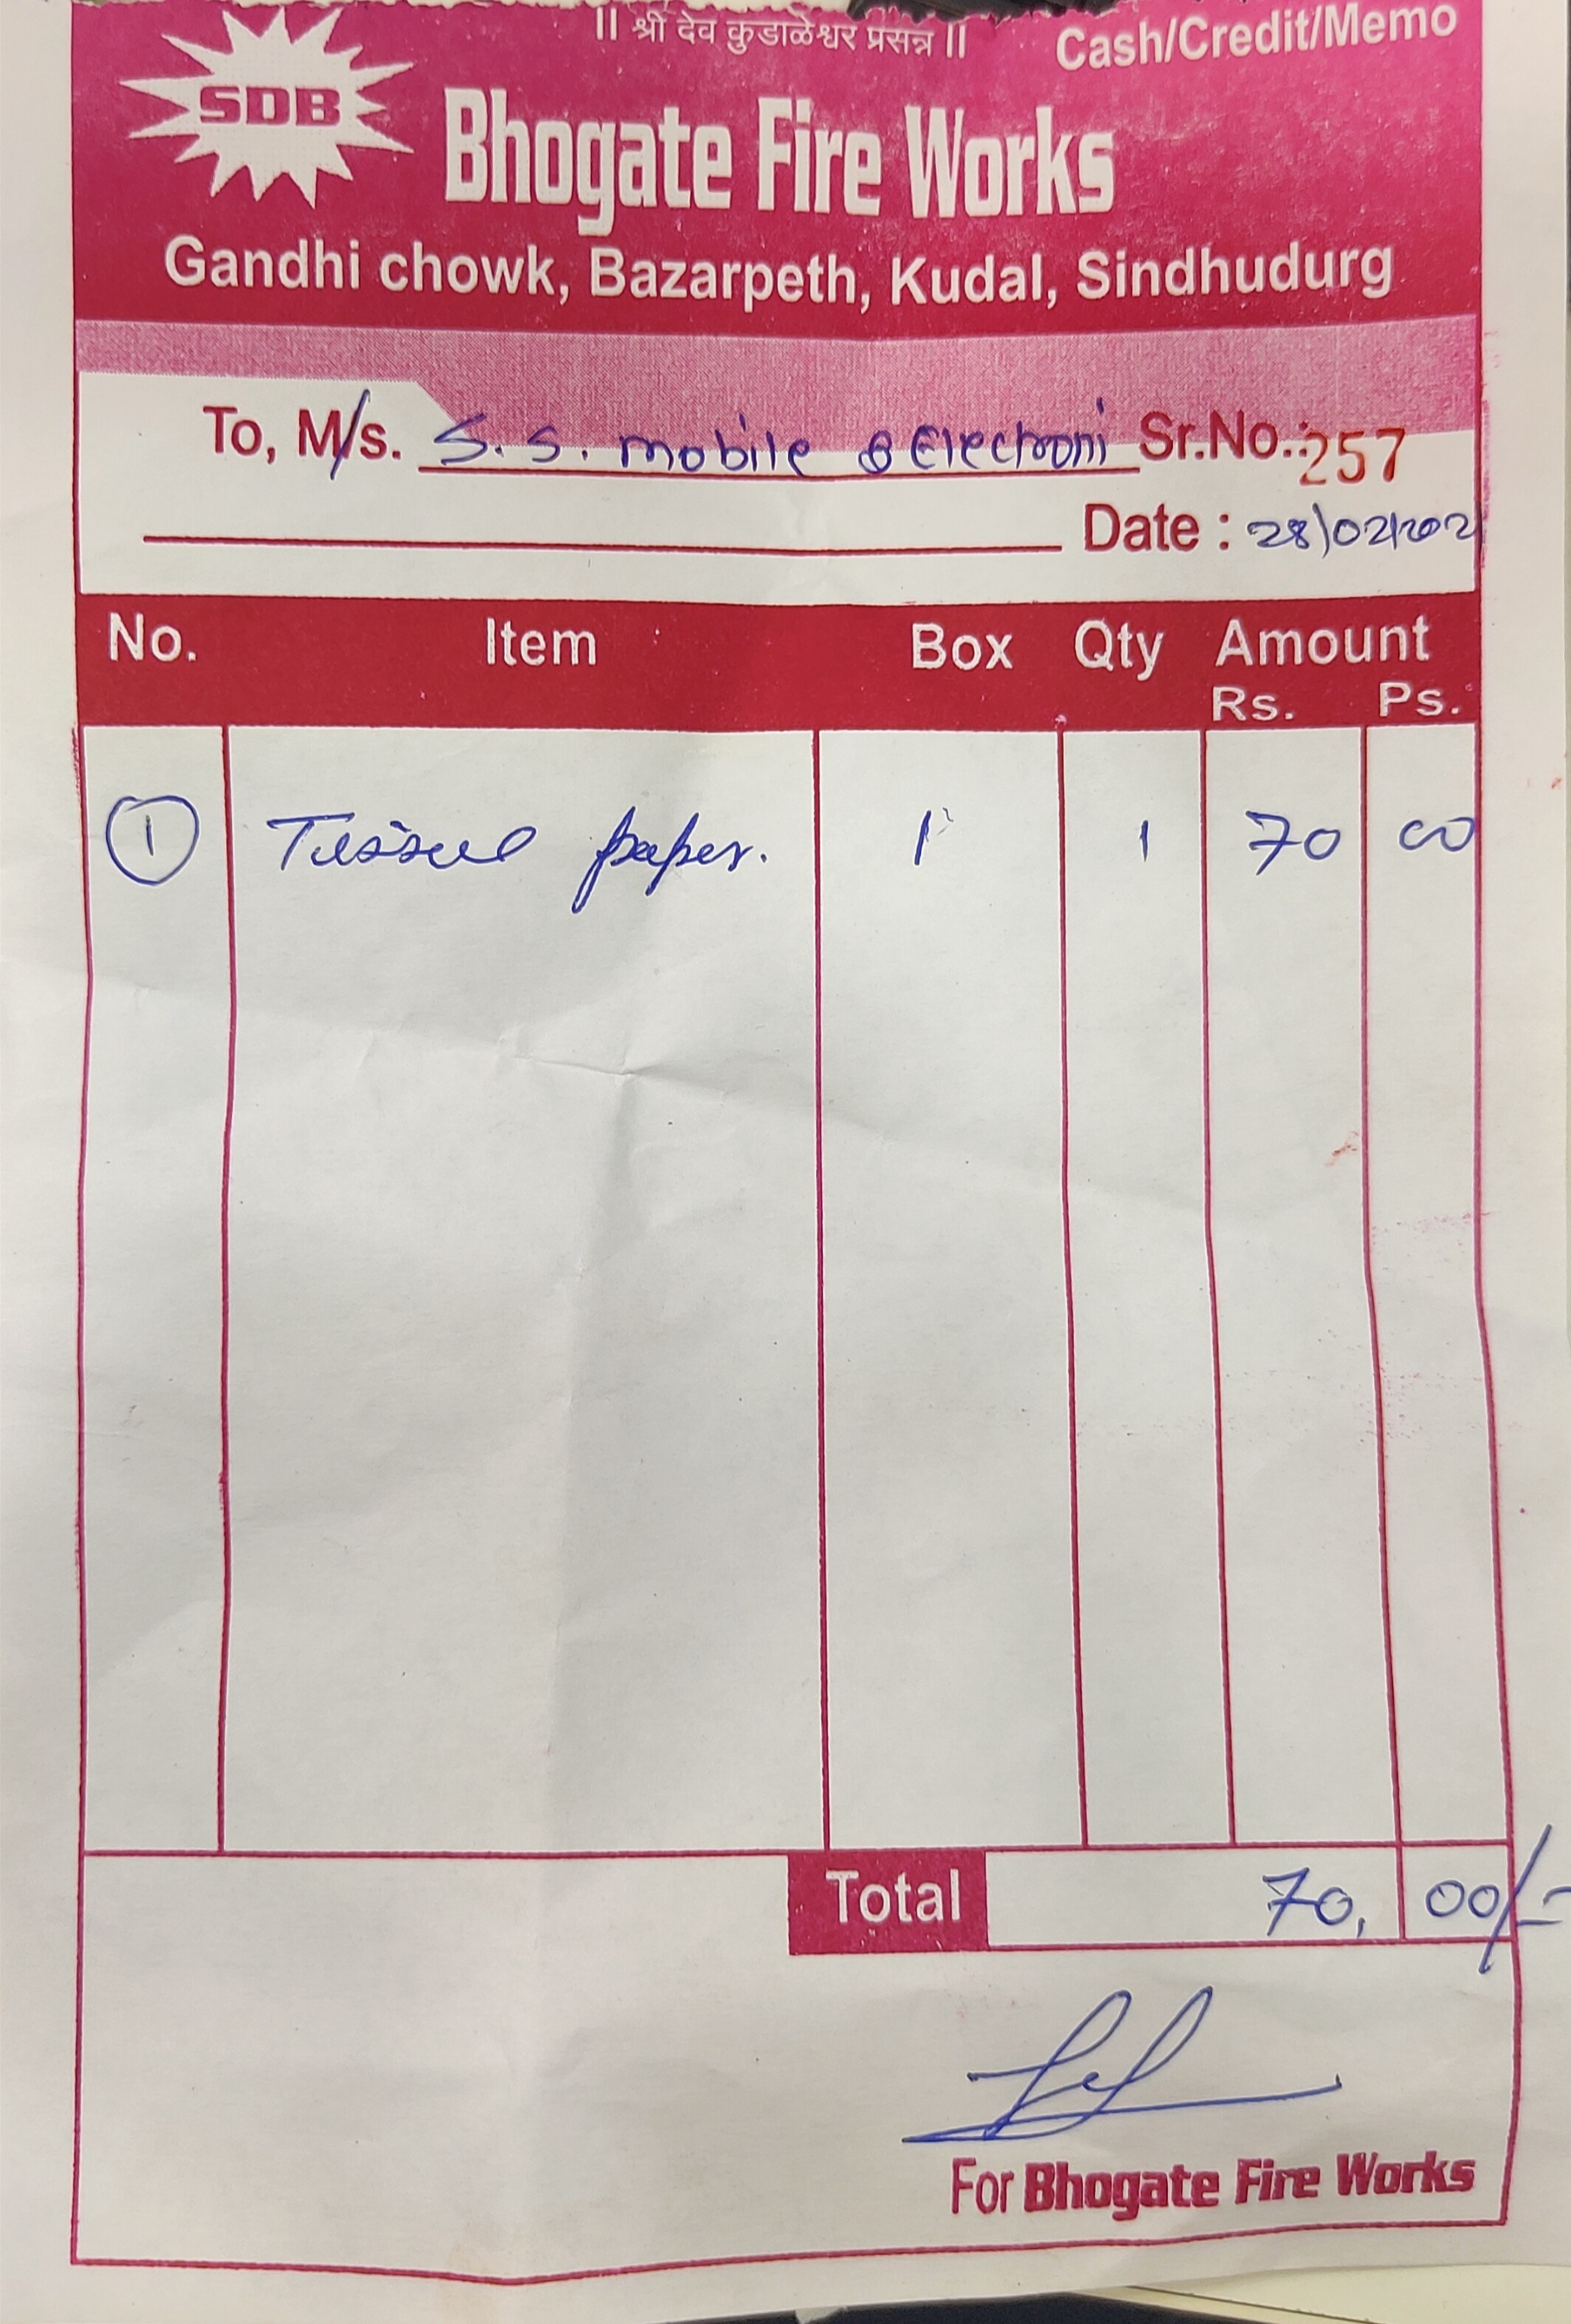 || श्री देव कुडाळेश्वर प्रसन्न ||
Cash/Credit/Memo
SDB
Bhogate Fire Works
Gandhi chowk, Bazarpeth, Kudal, Sindhudurg
To, M/s. S. S. mobile & Electroni Sr.No.: 257
Date : 28/02/202
No. Item Box Qty Amount
Rs. Ps.
1 Tissue paper. 1 1 70 00
Total 70, 00/-
For Bhogate Fire Works